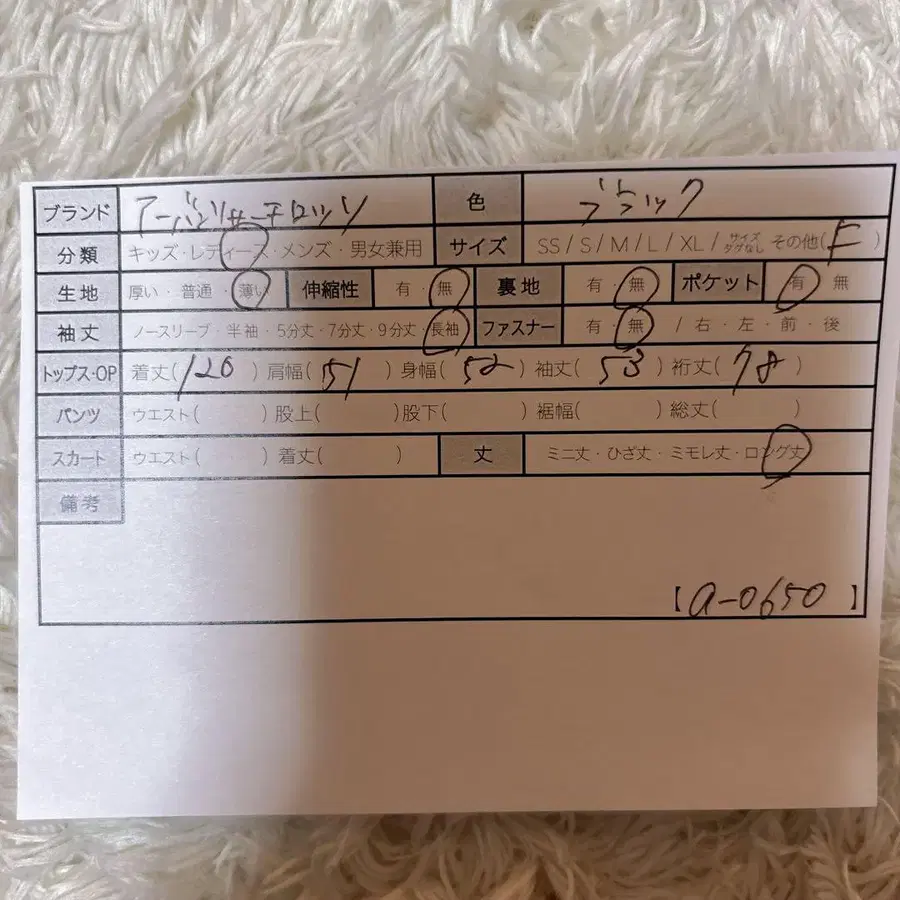 ブランド アーバンリサーチロッソ 色 ブラック
分類 キッズ・レディース・メンズ・男女兼用 サイズ SS / S / M / L / XL / サイズタグなし その他( F )
生地 厚い・普通・薄い 伸縮性 有・無 裏地 有・無 ポケット 有・無
袖丈 ノースリーブ・半袖・5分丈・7分丈・9分丈・長袖 ファスナー 有・無 / 右・左・前・後
トップス・OP 着丈( 120 ) 肩幅( 51 ) 身幅( 52 ) 袖丈( 53 ) 裄丈( 78 )
パンツ ウエスト( ) 股上( ) 股下( ) 裾幅( ) 総丈( )
スカート ウエスト( ) 着丈( ) 丈 ミニ丈・ひざ丈・ミモレ丈・ロング丈
備考
【 a-0650 】